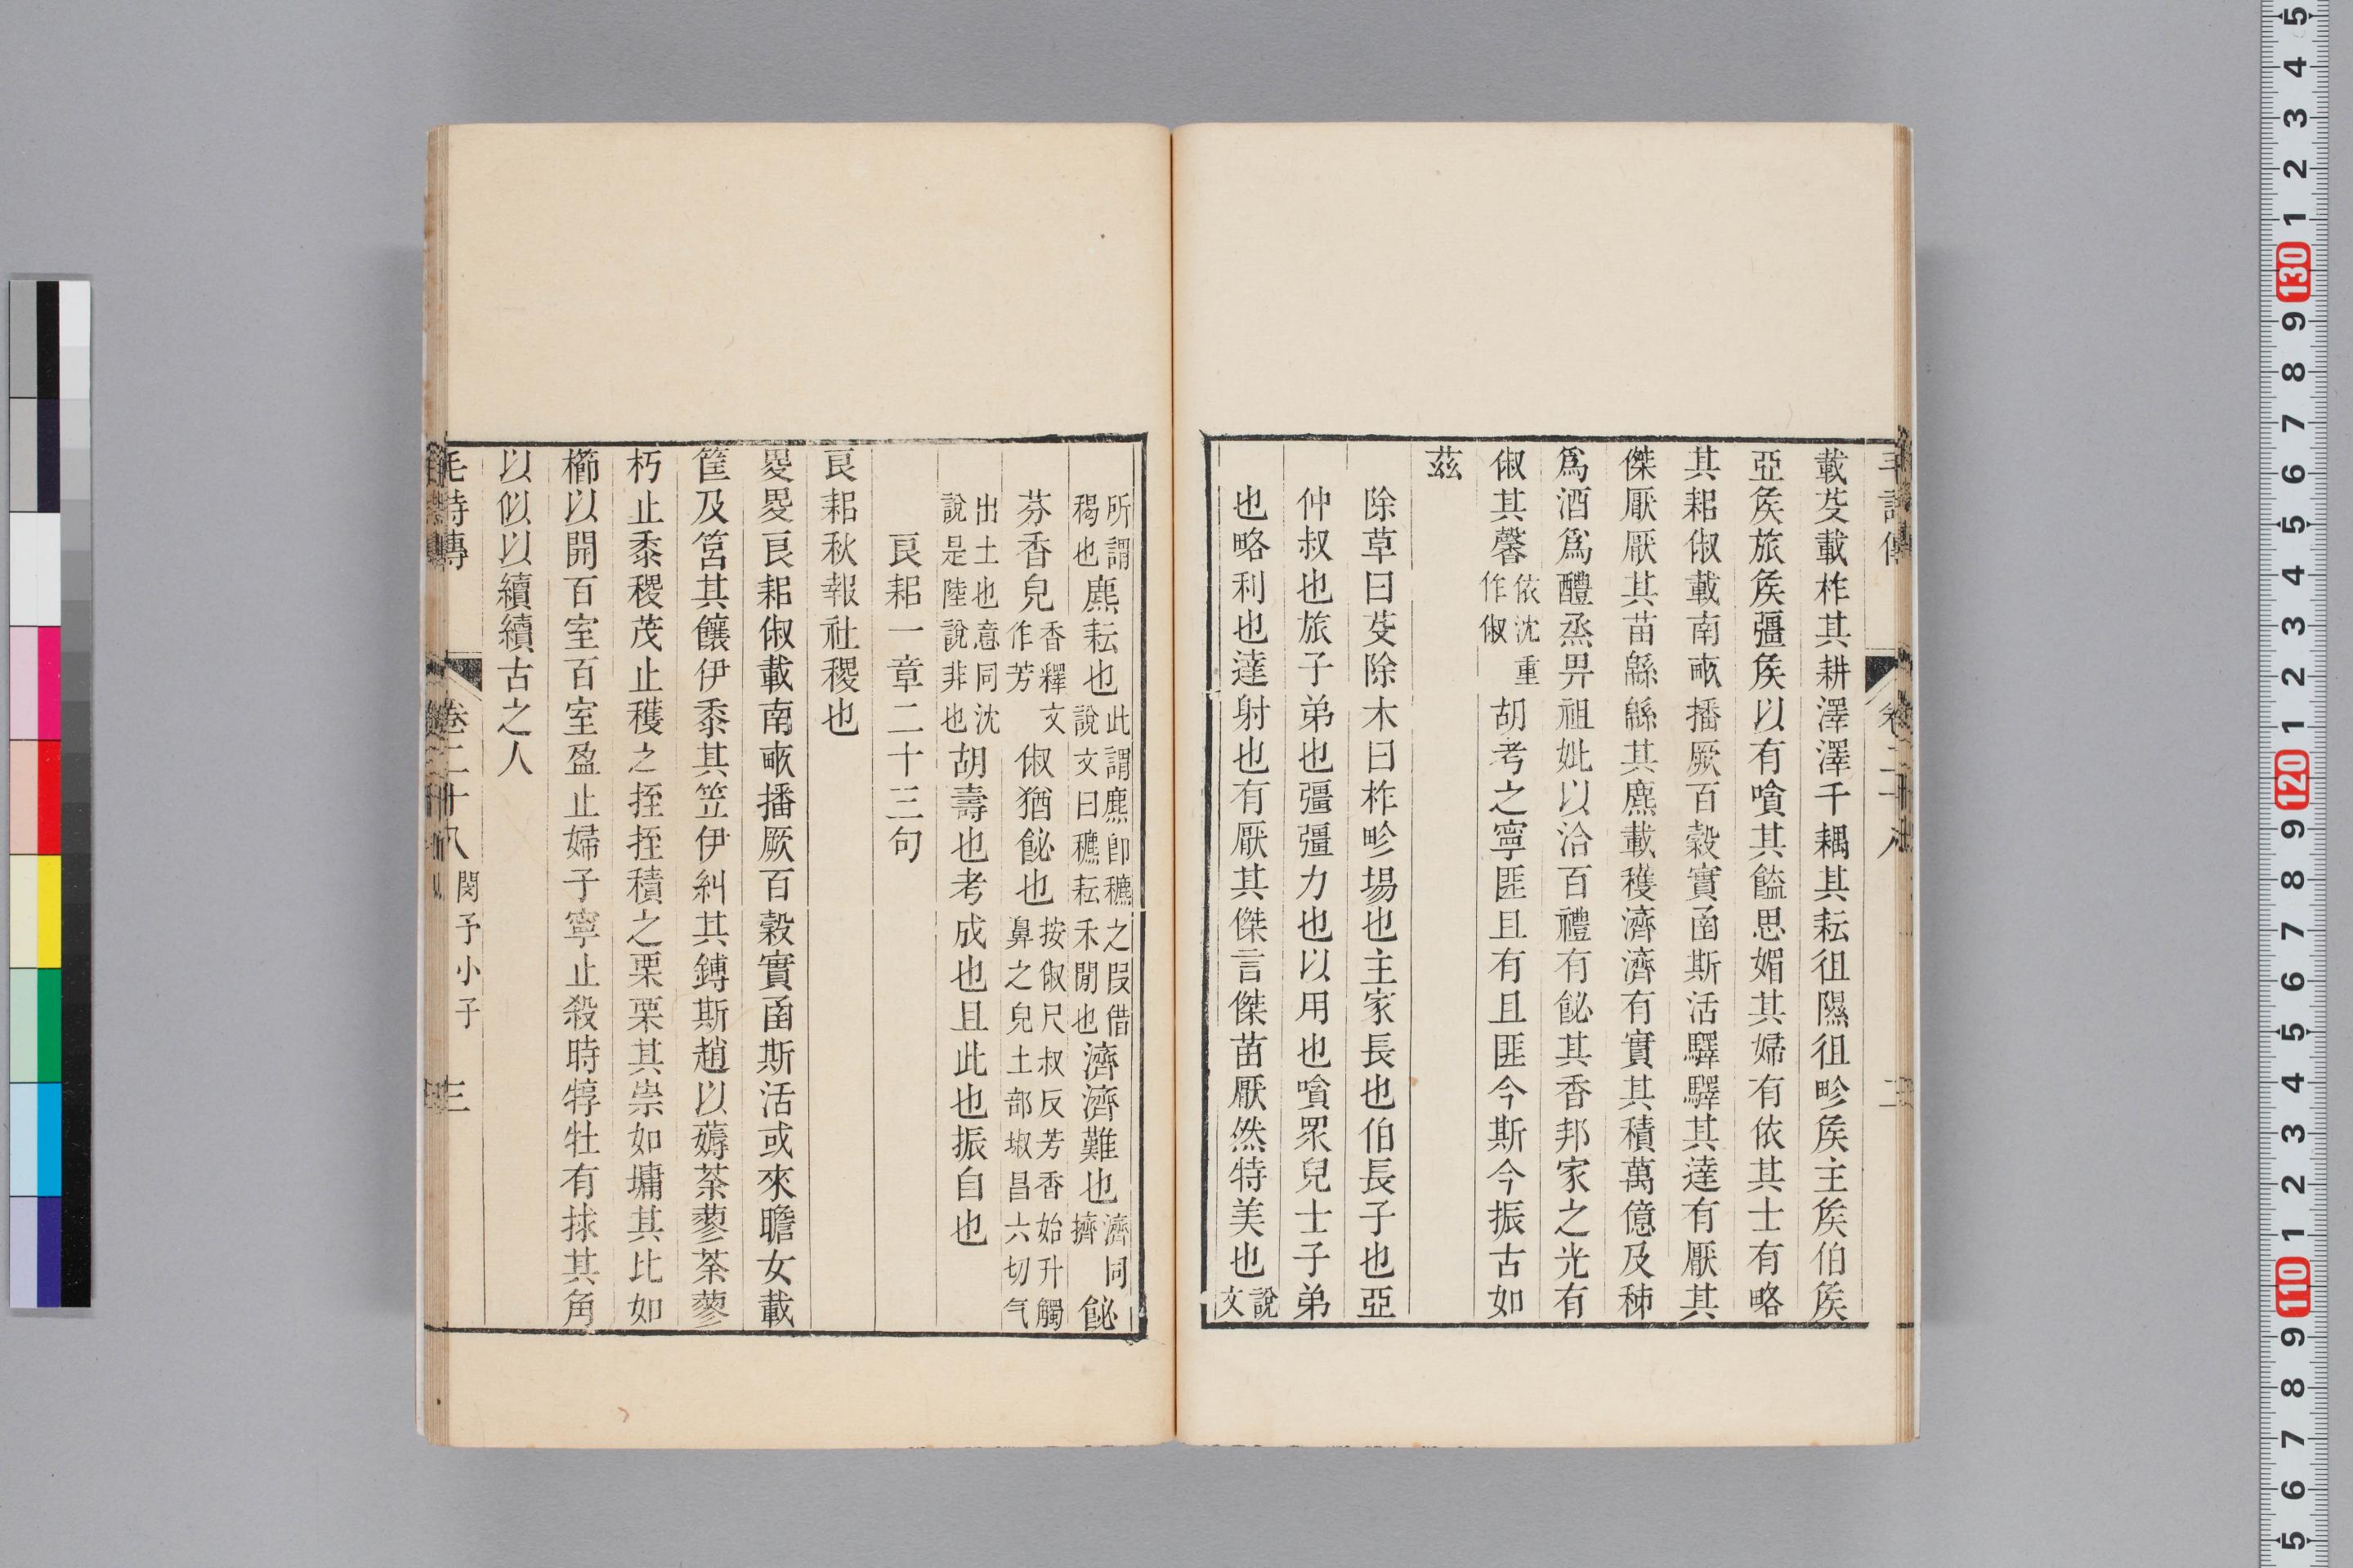 載芟載柞其耕澤澤千耦其耘徂隰徂畛矦主矦伯矦
亞矦旅矦彊矦以有噲其饁思媚其婦有依其士有略
其耜俶載南畮播厥百穀實函斯活驛驛其達有厭其
傑厭厭其苗緜緜其麃載穫濟濟有實其積萬億及秭
爲酒爲醴烝畀祖妣以洽百禮有飶其香邦家之光有
俶其馨依沈重作俶胡考之寧匪且有且匪今斯今振古如
茲
除草曰芟除木曰柞畛場也主家長也伯長子也亞
仲叔也旅子弟也彊彊力也以用也噲眾皃士子弟
也略利也達射也有厭其傑言傑苗厭然特美也說文
所謂稬也麃耘也此謂麃卽穮之叚借說文曰穮耘禾閒也濟濟難也濟同擠飶
芬香皃香釋文作芳俶猶飶也按俶尺叔反芳香始升觸鼻之皃土部埱昌六切气
出土也意同沈說是陸說非也胡壽也考成也且此也振自也
良耜一章二十三句
良耜秋報社稷也
畟畟良耜俶載南畮播厥百穀實函斯活或來瞻女載
筐及筥其饟伊黍其笠伊糾其鎛斯趙以薅荼蓼荼蓼
朽止黍稷茂止穫之挃挃積之栗栗其崇如墉其比如
櫛以開百室百室盈止婦子寧止殺時犉牡有捄其角
以似以續續古之人
毛詩傳 卷二十八 閔予小子 三
5 4 3 2 1 130 9 8 7 6 5 4 3 2 1 120 9 8 7 6 5 4 3 2 1 110 9 8 7 6 5